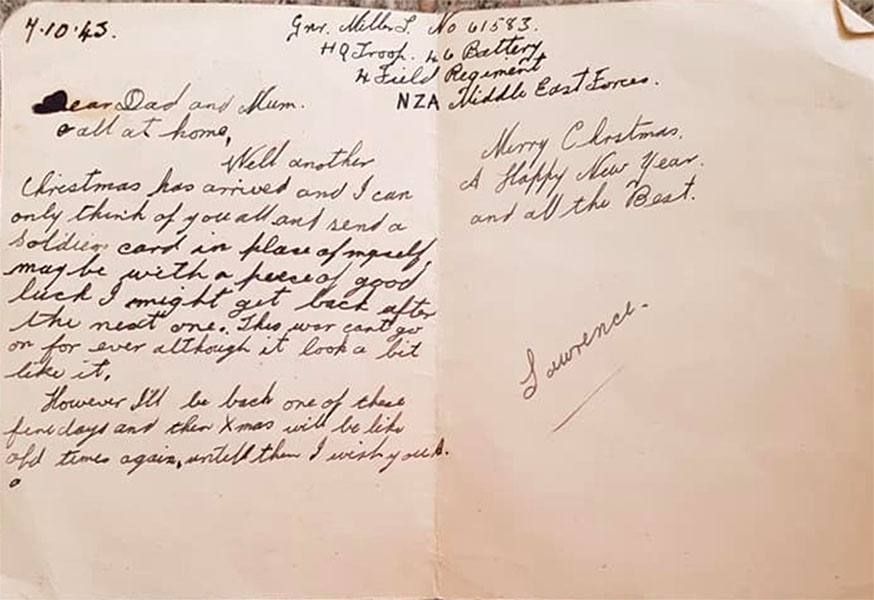 7.10.43.
Gnr. Miller L. No 61583.
HQ Troop. 46 Battery
4 Field Regiment
NZA Middle East Forces.
Dear Dad and Mum.
all at home,
Well another
Christmas has arrived and I can
only think of you all and send a
Soldiers card in place of myself,
may be with a peece of good
luck I might get back after
the next one. This war cant go
on for ever although it look a bit
like it.
However I'll be back one of these
fine days and then Xmas will be like
old times again, untill then I wish you A.
Merry Chrstmas.
A Happy New Year.
and all the Best.
Lawrence.